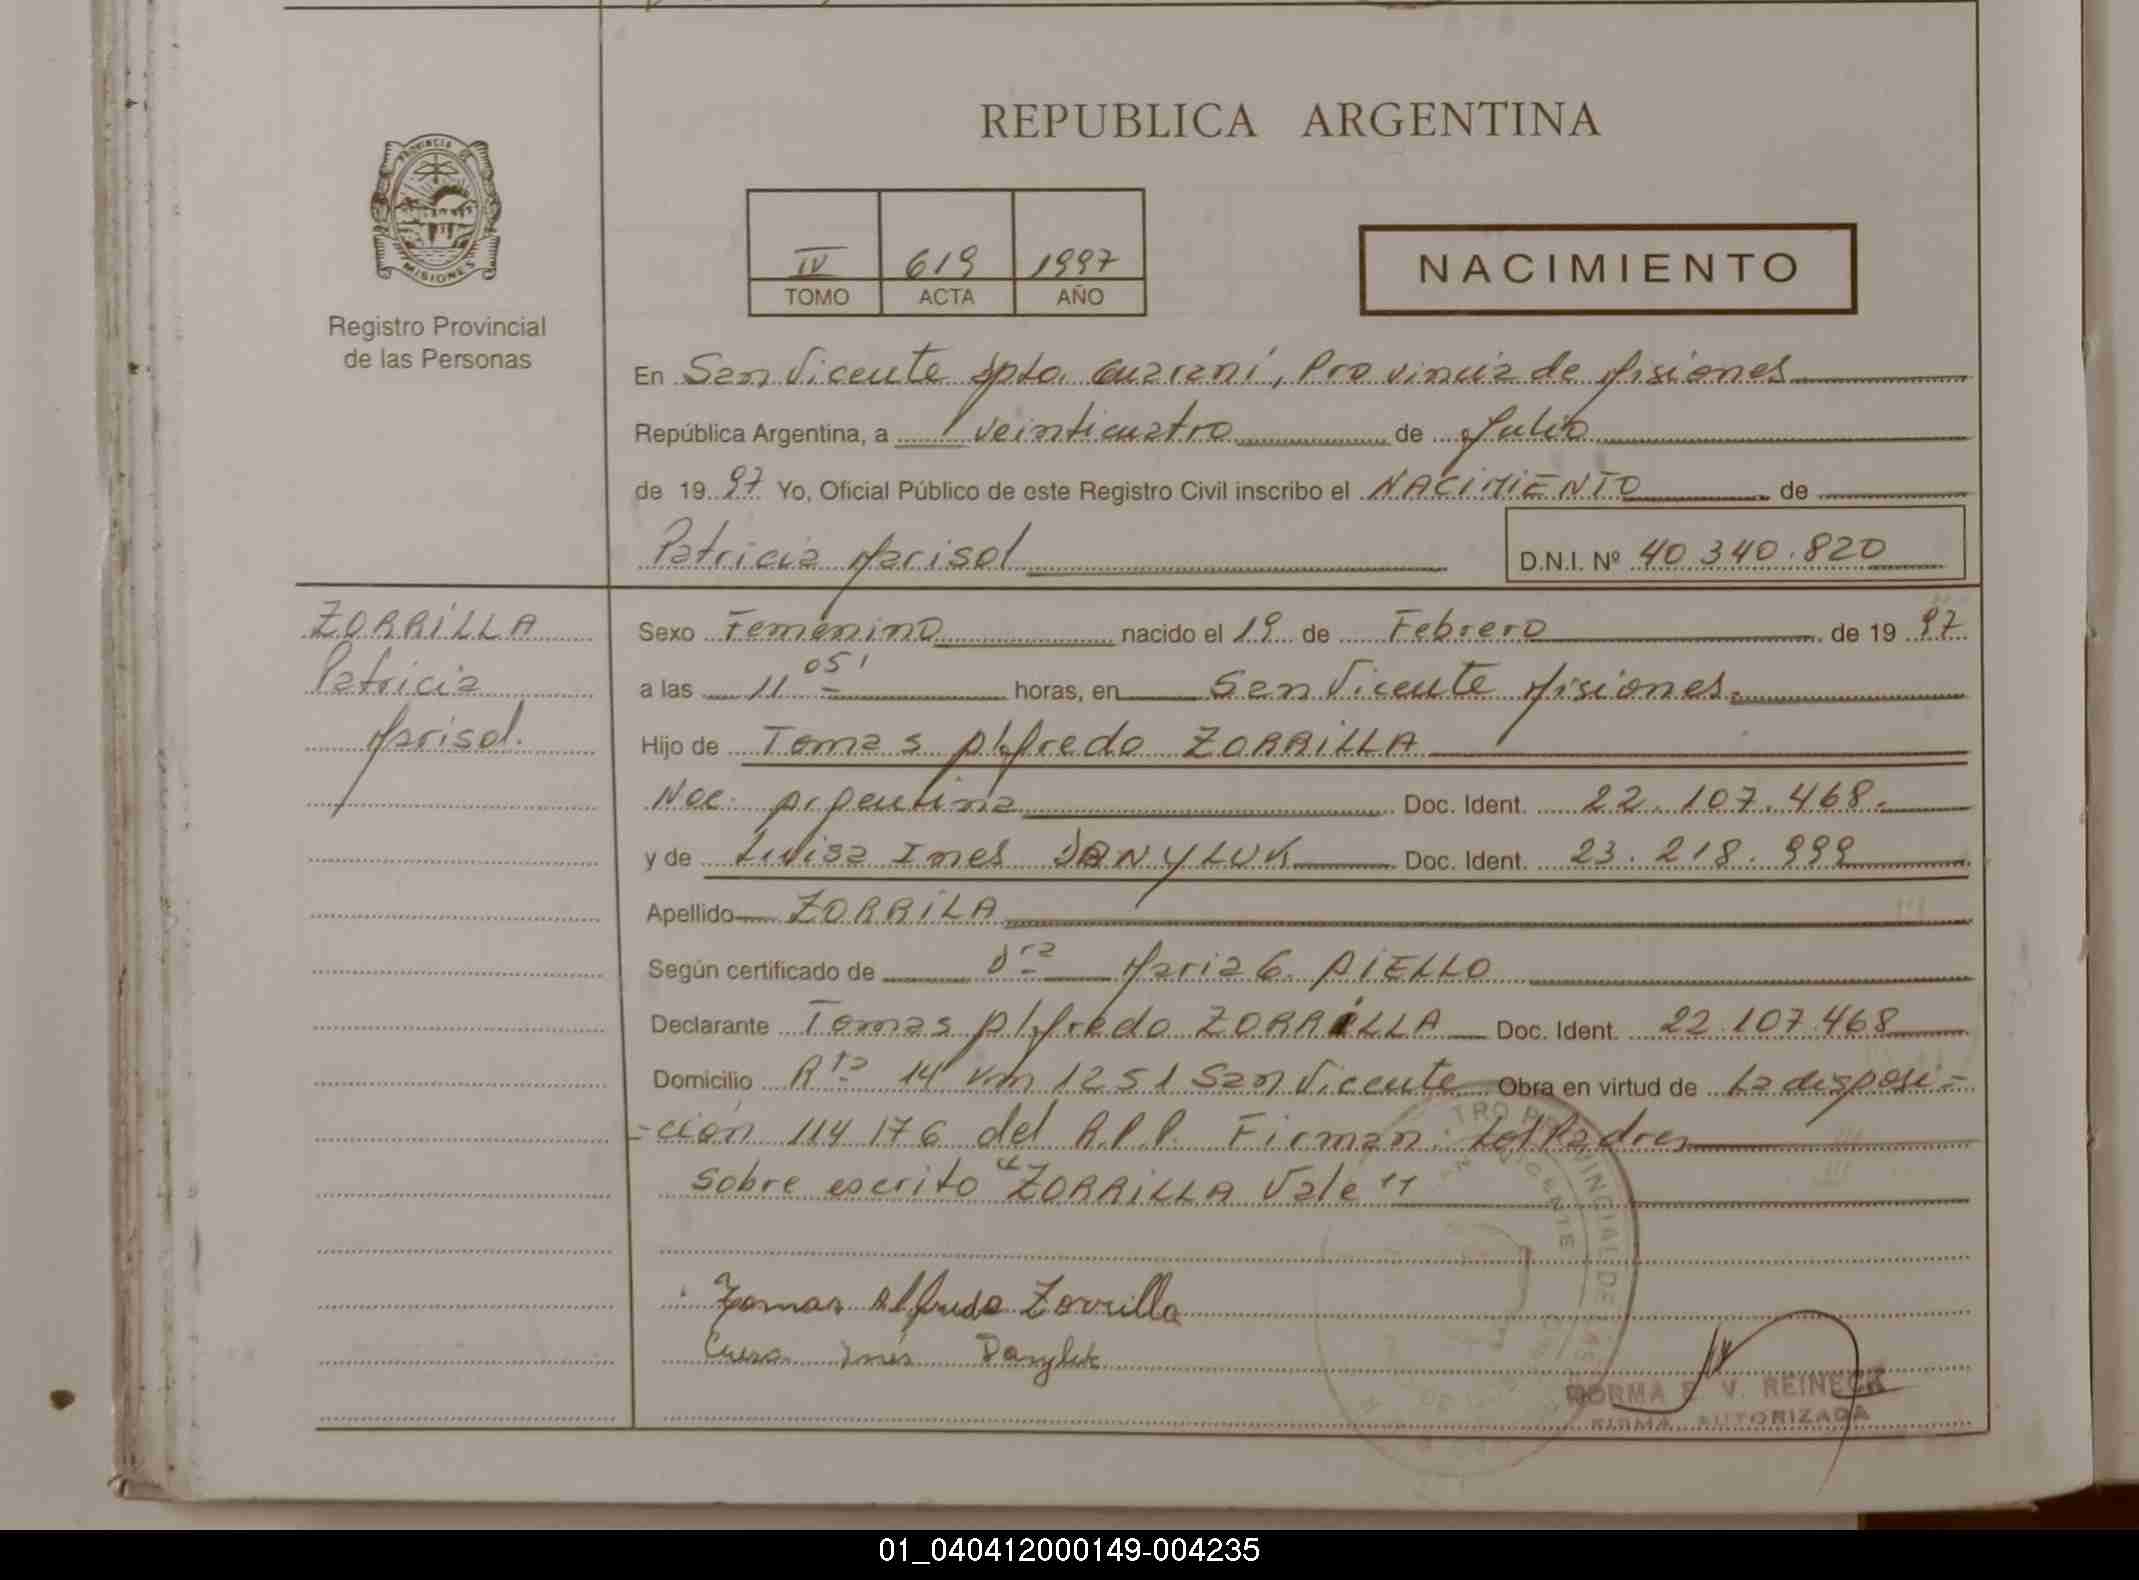 REPUBLICA ARGENTINA
PROVINCIA DE
MISIONES
Registro Provincial
de las Personas
IV 619 1997
TOMO ACTA AÑO
NACIMIENTO
En San Vicente Dpto. Guaraní, Provincia de Misiones
República Argentina, a veinticuatro de Julio
de 1997 Yo, Oficial Público de este Registro Civil inscribo el NACIMIENTO de
Patricia Marisol D.N.I. Nº 40.340.820
ZORRILLA
Patricia
Marisol.
Sexo Femenino nacido el 19 de Febrero de 1997
a las 11 05' horas, en San Vicente Misiones.
Hijo de Tomas Alfredo ZORRILLA
Nac. Argentina Doc. Ident. 22.107.468.
y de Luisa Ines DANYLUK Doc. Ident. 23.218.999
Apellido ZORRILA
Según certificado de Dra Maria G. AIELLO
Declarante Tomas Alfredo ZORRILLA Doc. Ident. 22.107.468
Domicilio Rta 14 Km 1251 San Vicente Obra en virtud de La disposi-
-ción 114176 del R.P.P. Firman Los Padres
sobre escrito "ZORRILLA Vale"
Tomas Alfredo Zorrilla
Inés
NORMA E. V. REINECK
FIRMA AUTORIZADA
01_040412000149-004235